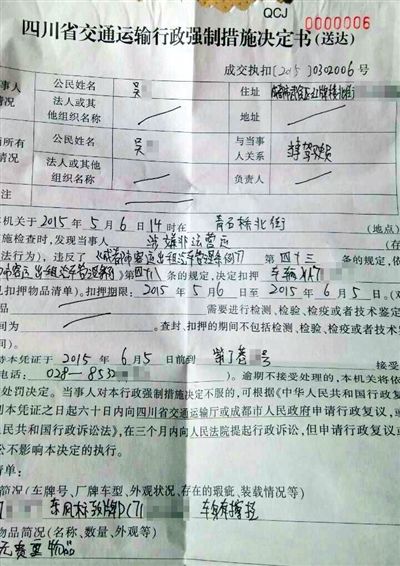 QCJ
0000006
四川省交通运输行政强制措施决定书(送达)
成交执扣〔2015〕0302006号
事人 公民姓名 吴 住址
情况 法人或其他组织名称 地址
所有 公民姓名 吴 与当事人关系
情况 法人或其他组织名称 负责人
注
机关于2015年5月6日14时在 青石桥北街 (地点)
施检查时,发现当事人 涉嫌非法营运
法行为),违反了《成都市客运出租汽车管理条例》第四十三条的规定,依
市客运出租汽车管理条例》第四十八条的规定,决定扣押 车辆
扣押物品清单)。扣押期限:2015年5月6日至2015年6月5日。(对
需要进行检测、检验、检疫或者技术鉴定
间为 。查封、扣押的期间不包括检测、检验、检疫或者技术鉴定
持本凭证于2015年6月5日前到 号 接受
电话:028-8532 。逾期不接受处理的,本机关将依
处罚决定。当事人对本行政强制措施决定不服的,可根据《中华人民共和国行政复
到本凭证之日起六十日内向四川省交通运输厅或成都市人民政府申请行政复议,或
人民共和国行政诉讼法》,在三个月内向人民法院提起行政诉讼,但申请行政复议或
讼不影响本决定的执行。
清单:
简况(车牌号、厂牌车型、外观状况、存在的瑕疵、装载情况等)
71 东风标致牌DC71 车辆有擦挂
物品简况(名称、数量、外观等)
无贵重物品